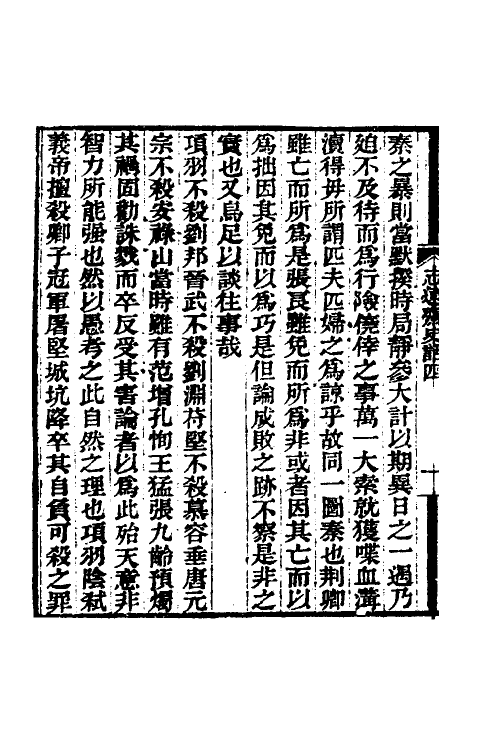 秦之暴則當默揆時局靜參大計以期異日之一遇乃
迫不及待而爲行險僥倖之事萬一大索就獲喋血溝
瀆得毋所謂匹夫匹婦之爲諒乎故同一圖秦也荆卿
雖亡而所爲是張良雖免而所爲非或者因其亡而以
爲拙因其免而以爲巧是但論成敗之跡不察是非之
實也又烏足以談往事哉
項羽不殺劉邦晉武不殺劉淵苻堅不殺慕容垂唐元
宗不殺安祿山當時雖有范增孔恂王猛張九齡預燭
其禍固勸誅戮而卒反受其害論者以爲此殆天意非
智力所能强也然以愚考之此自然之理也項羽陰弒
義帝擅殺卿子冠軍屠堅城坑降卒其自負可殺之罪
志遠齋史話四
十